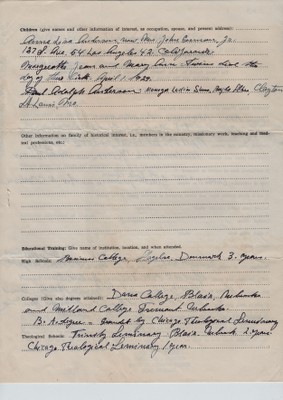 Children (give names and other information of interest, as occupation, spouse, and present address:
Anna Lisa Anderson now Mrs. John Cornson, Jr.
137 S. Ave. 54 Los Angeles 42. California
Margareth Jean and Mary Ann Twins died the
day of their birth. April 1, 1929.
Paul Adolph Anderson. Clayton
St. Louis, Mo.
Other information on family of historical interest, i.e., members in the ministry, missionary work, teaching and medical professions, etc.)
Educational Training: Give name of institution, location, and when attended.
High Schools: College, Denmark 3. years.
Colleges (Give also degrees attained): Dana College, Blair, Nebraska
and Midland College Fremont Nebraska.
B. A. Degree - granted by Chicago Theological Seminary
Theological Schools: Trinity Seminary Blair Nebrask 2. years
Chicago Theological Seminary 1 year.